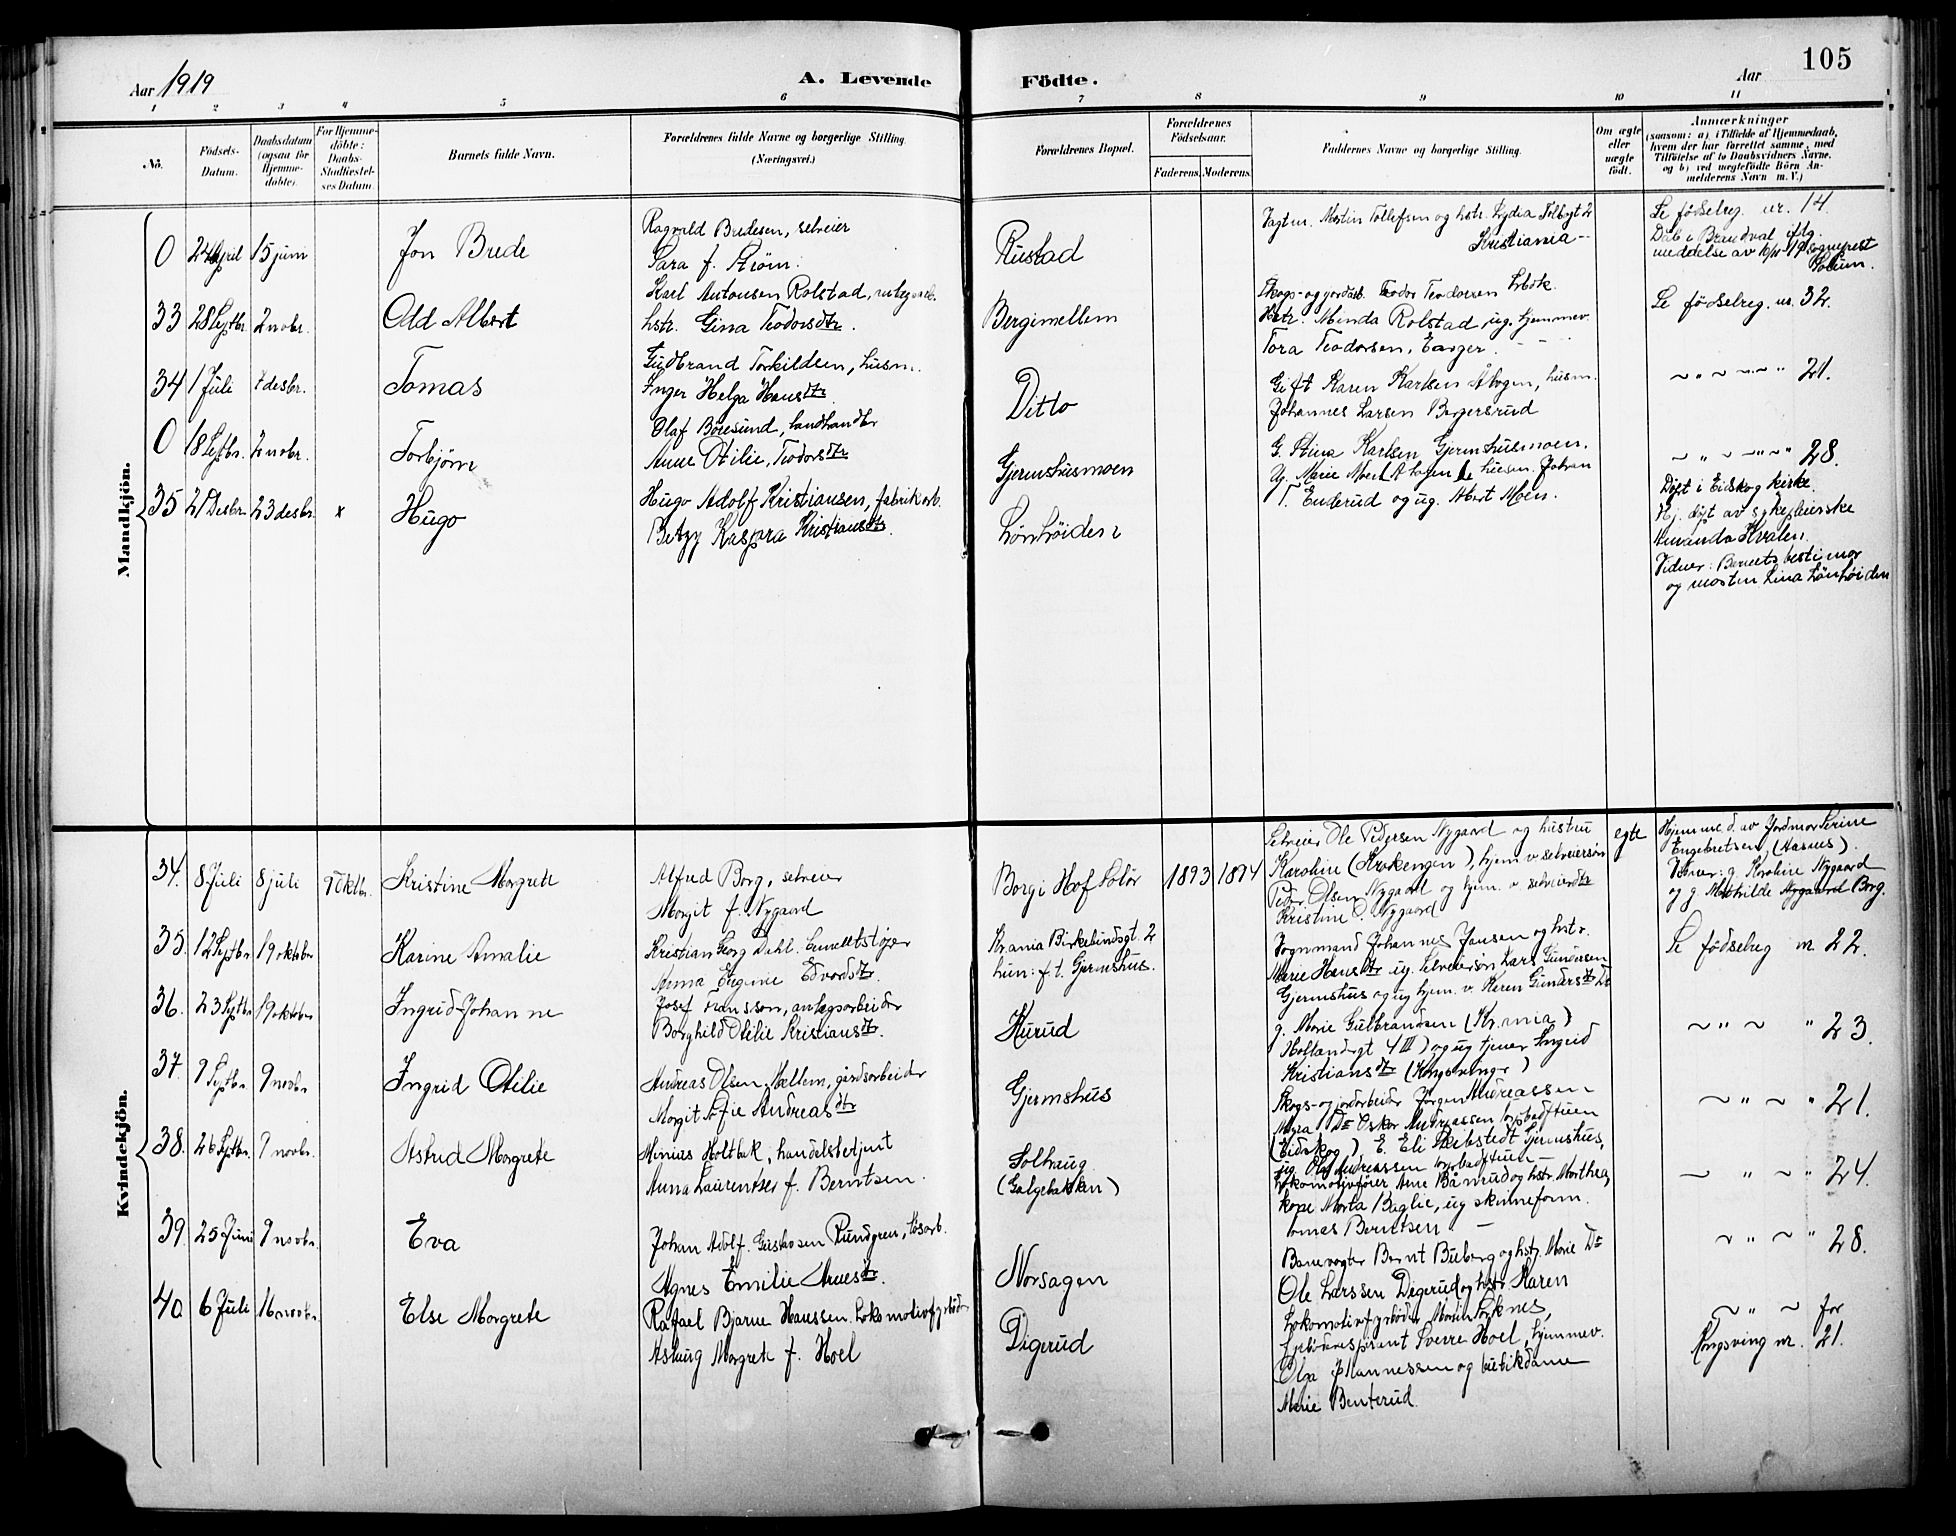 105
Aar 1919
A. Levende
Födte.
Aar
1 2 3 4 5 6 7 8 9 10 11
No.
Födsels-Datum.
Daabsdatum (ogsaa for Hjemme-döbte).
For Hjemme-döbte: Daabs-Stadfæstel-ses Datum.
Barnets fulde Navn.
Forældrenes fulde Navne og borgerlige Stilling (Næringsvei.)
Forældrenes Bopæl.
Forældrenes Födselsaar.
Faderens. Moderens.
Faddernes Navne og borgerlige Stilling.
Om ægte eller uægte födt.
Anmærkninger
(saasom: a) i Tilfælde af Hjemmedaab, hvem der har forrettet samme, med Tilföielse af to Daabsvidners Navne, og b) ved uægtefödte Börn An-melderens Navn m. V.)
Mandkjön.
0 24 April 15 juni Jon Brede
Ragvald Bredesen, selveier
Sara f. Strøm.
Rustad
Vagtm. Martin Tollefsen og hstr. Lydia Tolbgt 2
Kristiania
Se fødselreg. nr. 14.
Døb i Brandval iflg.
meddelse av
33 28 Septbr. 2 novbr. Odd Albert
Karl Antonsen Rolstad,
hstr. Gina Teodorsdtr.
Bergimellem
Skogs- og jordarb. Teodor Teodorsen
Hstr. Minda Rolstad ug. hjemmev.
Tora Teodorsen,
Se fødselreg. nr. 32.
34 1 Juli 7 desbr. Tomas
Gudbrand Torkildsen, husm.
Inger Helga Hansdtr.
Ditto
Gift Karen Karlsen Åbogen, husm.
Johannes Larsen Bergersrud
~ " ~ " 21.
0 18 Septbr. 2 novbr. Torbjørn
Olaf Børesund, landhandler
Anne Otilie, Teodorsdtr
Gjermshusmoen
G. Stina Karlsen Gjermshusmoen.
Ug. Marie Moen Åbogen husm. Johan
T. Enderud og ug. Albert Moen.
~ " ~ " 28.
35 21 Desbr. 23 desbr. x Hugo
Hugo Adolf Kristiansen, fabrikarb.
Betzy Kaspara Kristiansdtr.
Lønhøiden
Døpt i Eidskog kirke.
Hj. døpt av sykepleierske
Amanda Kvalen.
Vidner: Barnets bestemor
og moster Lina Lønhøiden
Kvindekjön.
34. 8 Juli 8 juli 9 oktbr. Kristine Margrete
Alfred Borg, selveier
Margit f. Nygaard
Borgi Hof Solør 1893 1894
Selveier Ole Pedersen Nygaard og hustru
Karoline (Krokengen), hjem. v. selveiersøn
Peder Olsen Nygaard og hjem. v. selveierdtr
Kristine O. Nygaard
egte
Hjemme d. av Jordmor Serine
Engebretsen, (Aasnes).
Vidner: g. Karoline Nygaard
og g. Mathilde Nygaard Borg.
35. 12 Septbr. 19 oktober Karine Amalie
Kristian Georg Dahl.
Anna Eugenie Edvardsdtr.
Kr.ania Birkelundsgt. 2
hun: f. t. Gjermshus.
Vognmand Johannes Jansen og hstr.
Marie Hansdtr ug. Selveiersøn Lars Gundersen
Gjermshus og ug hjem. v. Karen Gundersdtr Do
Se fødselreg nr. 22.
36. 23 Septbr. 19 oktober Ingrid Johanne
Josef Hansson, anlægsarbeider
Borghild Otilie Kristiansdtr.
Hurud
g. Marie Gulbrandsen (Kr.ania)
Hollandergt 4 III) og ug tjener Ingrid
Kristiansdtr (Kongsvinger)
~ " ~ " 23.
37. 9 Septbr. 9 novbr Ingrid Otilie
Andreas Olsen Mellem, gårdsarbeider
Margit Sofie Andreasdtr
Gjermshus
Skogs- og jordarbeider Jørgen Andreassen
Myra Do Oskar Andreassen
(Eidskog) E. Eli Skibstedt Gjermshus,
ug. Olaf Andreassen
~ " ~ " 21.
38. 26 Septbr. 9 novbr. Astrid Margrete
Minius Holtbak, handelsbetjent
Anna Laurentse f. Berntsen.
Solhaug
(Galgebakken)
Lokomotivfører Arne Bånrud og hstr. Marthea,
kone Marta Baglie, ug skinneform.
Jonas Berntsen
~ " ~ " 24.
39. 25 Juni 9 novbr. Eva
Johan Adolf Gustavsen Rundgren, løsarb.
Agnes Emilie Arnesdtr.
Norsagen
Banevogter Bernt Buberg og hstr. Marie Do
Ole Larssen Digerud og hstr. Karen
~ " ~ " 28.
40. 6 Juli 16 novbr. Else Margrete
Rafael Bjarne Hanssen. Lokomotivfyrbøder
Aslaug Margrete f. Hoel
Digerud
Lokomotivfyrbøder Martin Soknes,
fyrbøderaspirant Sverre Hoel, hjemmev.
Olga Johannessen og butikdame
Marie Benterud.
~ " ~ for
Kongsving nr. 21.